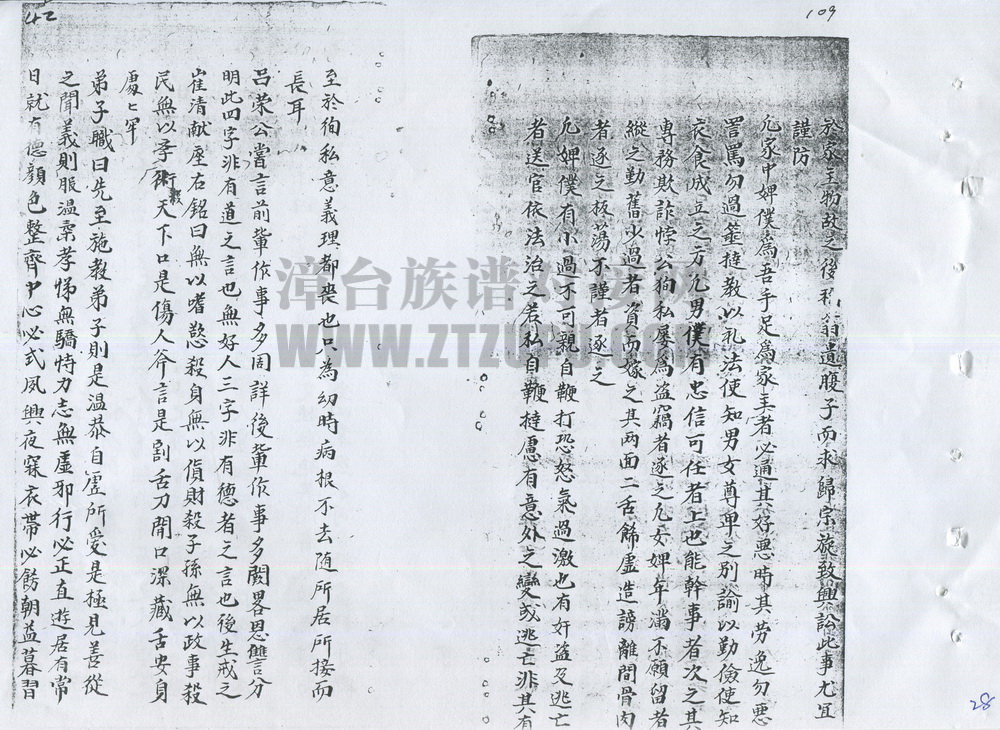 42
109
於家主物故之後稱為遺腹子而求歸宗族致興訟此事尤宜
謹防
凡家中婢僕為吾手足為家主者必適其好惡時其勞逸勿惡
詈罵勿過箠撻教以礼法使知男女尊卑之別諭以勤儉使知
衣食成立之方凡男僕有忠信可任者上也能幹事者次之其
專務欺詐悖公狥私屡為盜竊者逐之凡女婢年滿不願留者
縱之勤舊少過者資而嫁之其兩面二舌飾虛造謗離間骨肉
者逐之放蕩不謹者逐之
凡婢僕有小過不可親自鞭打恐怒氣過激也有奸盜及逃亡
者送官依法治之若私自鞭撻慮有意外之變或逃亡非其有
至於徇私意義理都喪也只為幼時病根不去随所居所接而
長耳
呂荣公嘗言前輩作事多周詳後輩作事多闕畧恩讐分
明此四字非有道之言也無好人三字非有德者之言也後生戒之
崔清献座右銘曰無以嗜慾殺身無以貨財殺子孫無以政事殺
民無以學術殺天下口是傷人斧言是割舌刀閉口深藏舌安身
處匕牢
弟子職曰先生施教弟子則是温恭自虛所受是極見善從
之聞義則服温柔孝悌無驕恃力志無虛邪行必正直遊居有常
日就有德顔色整齊中心必式夙興夜寐衣帶必飭朝益暮習
漳台族谱对接网
WWW.ZTZUPU.COM
28